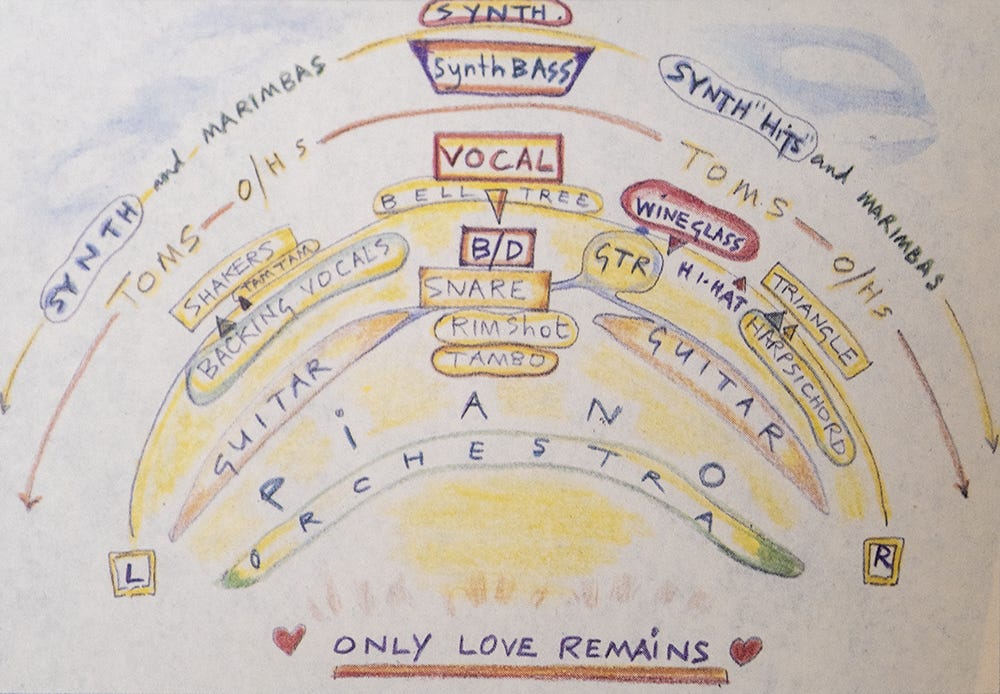 SYNTH.
Synth BASS
SYNTH and MARIMBAS
SYNTH "HiTS" and MARIMBAS
TOMS O/HS
TOMS O/HS
VOCAL
BELL TREE
WINEGLASS
B/D
GTR
HI-HAT
SHAKERS
TAM TAM
BACKING VOCALS
SNARE
TRIANGLE
HARPSICHORD
RiMShot
TAMBO
GUITAR
GUITAR
PiANO
ORCHESTRA
L
R
ONLY LOVE REMAiNS